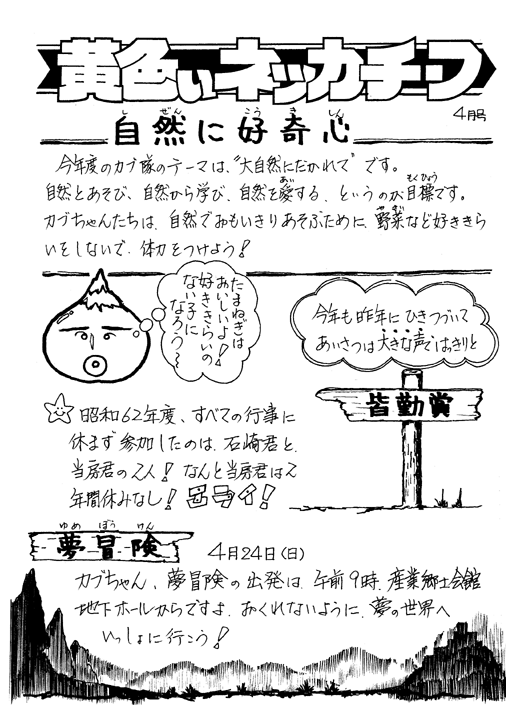 黄色いネッカチーフ
4月号
しぜん こうきしん
自然に好奇心
今年度のカブ隊のテーマは、"大自然にだかれて"です。
自然とあそび、自然から学び、自然を愛する、というのが目標です。
カブちゃんたちは、自然でおもいきりあそぶために、野菜など好ききら
いをしないで、体力をつけよう!
たまねぎは
おいしいよ!
好ききらいの
ない子に
なろう〜
今年も昨年にひきつづいて
あいさつは大きな声ではっきりと
皆勤賞
昭和62年度、すべての行事に
休まず参加したのは、石崎君と、
当房君の2人!なんと当房君は2
年間休みなし!エライ!
ゆめ ぼう けん
夢冒険
4月24日(日)
カブちゃん、夢冒険の出発は、午前9時、産業郷土会館
地下ホールからですよ。おくれないように、夢の世界へ
いっしょに行こう!